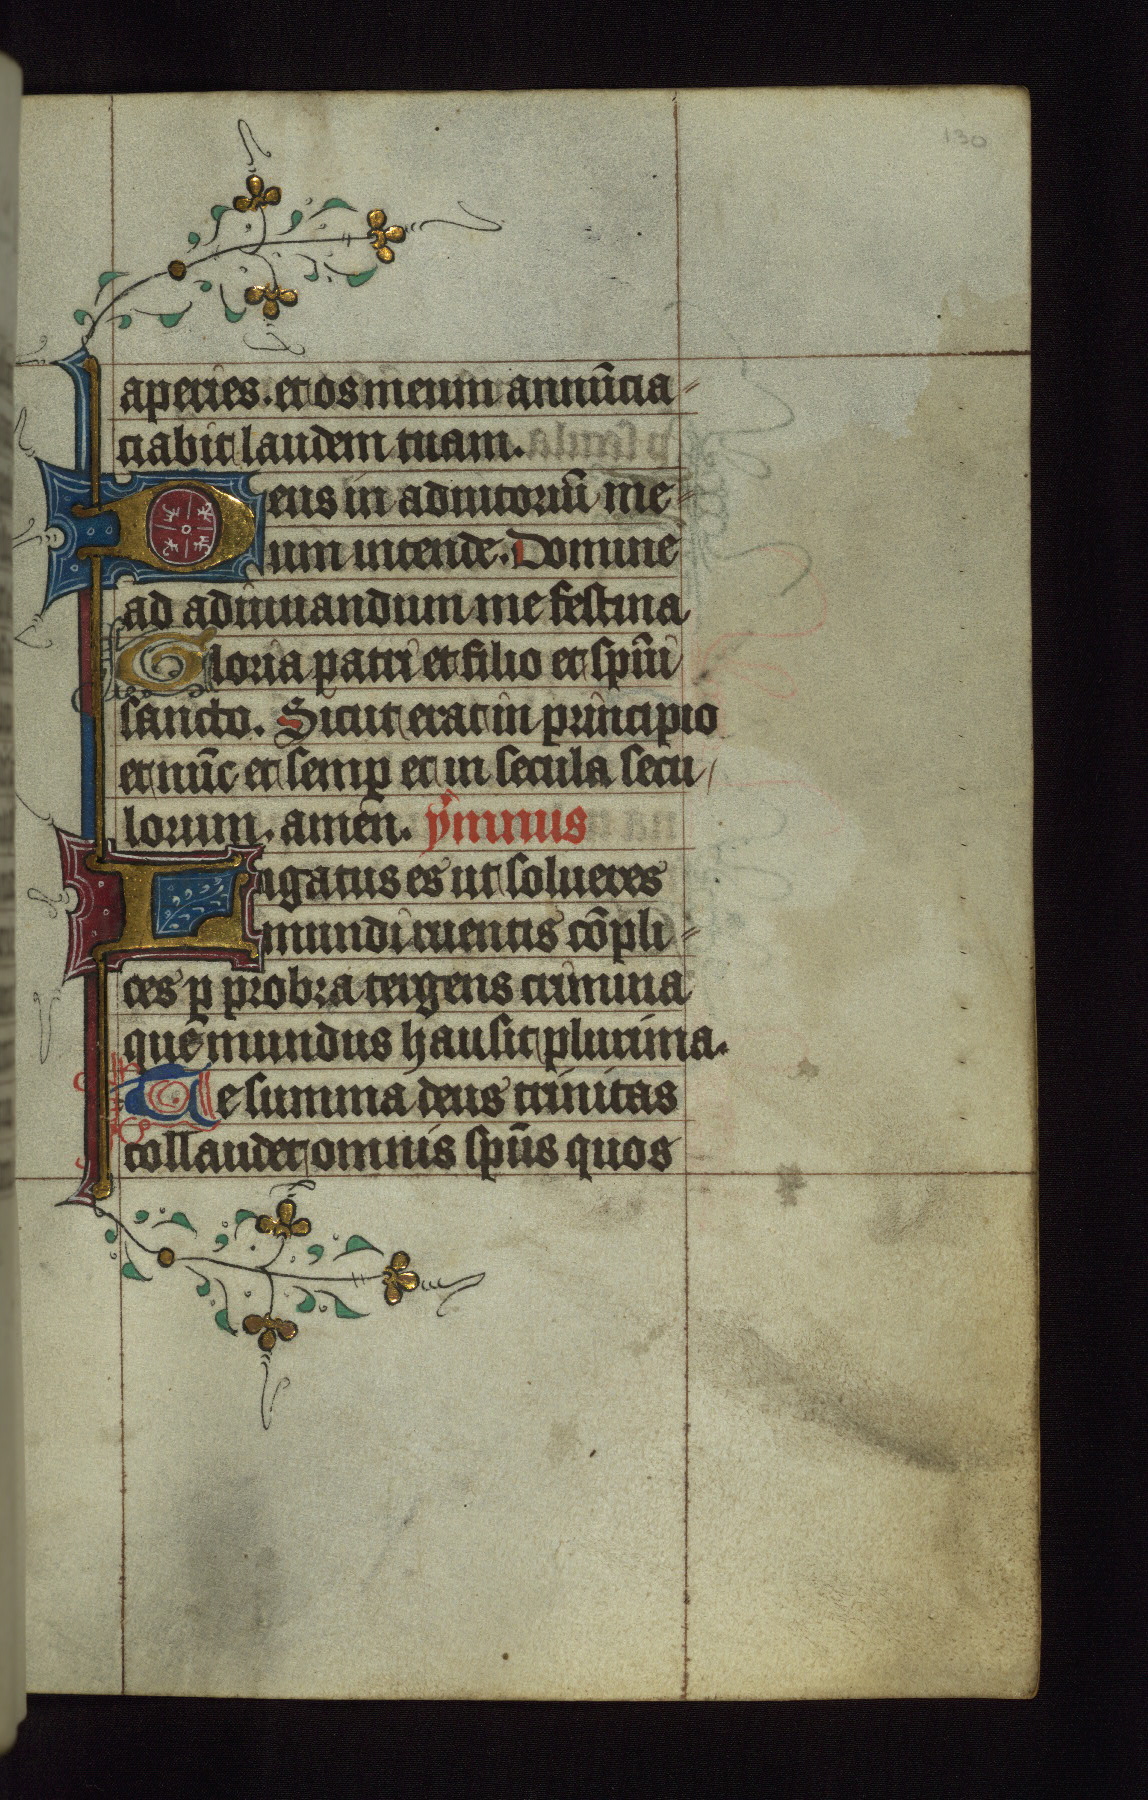 130
aperies. et os meum annũcia
ciabit laudem tuam.
Deus in adiutoriũ me
um intende. Domine
ad adiuuandum me festina
Gloria patri et filio et spũi
sancto. Sicut erat in principio
et nũc et semꝑ et in secula secu
lorum. amen. ẏmnus
Ligatus es ut solueres
mundi ruentis cõpli
ces ꝑ probra tergens crimina
que mundus hausit plurima.
Te summa deus trinitas
collaudet omnis spũs quos